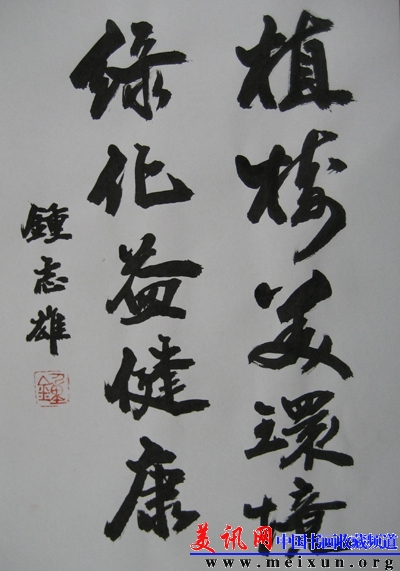 植樹美環境
綠化益健康
鍾志雄
美讯网
中国书画收藏频道
www.meixun.org